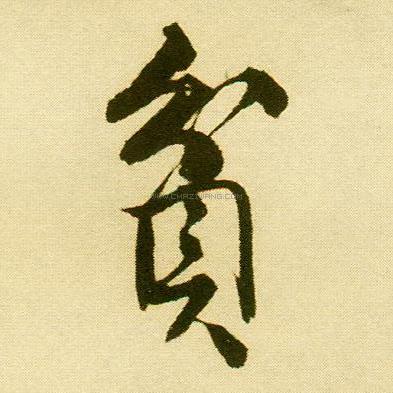 貧
WWW.CHAZIWANG.COM